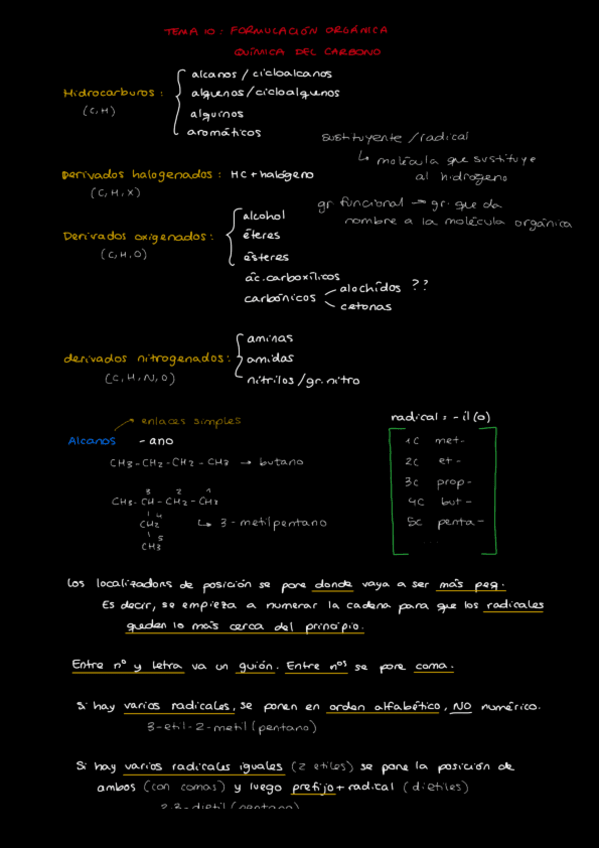 TEMA 10: FORMULACIÓN ORGÁNICA
QUÍMICA DEL CARBONO
Hidrocarburos:
(C, H)
alcanos / cicloalcanos
alquenos / cicloalquenos
alquinos
aromáticos
sustituyente / radical
↳ molécula que sustituye
al hidrógeno
Derivados halogenados: HC + halógeno
(C, H, X)
gr. funcional → gr. que da
nombre a la molécula orgánica
Derivados oxigenados:
(C, H, O)
alcohol
éteres
ésteres
ác. carboxílicos
carbónicos
alochídos ??
cetonas
derivados nitrogenados:
(C, H, N, O)
aminas
amidas
nitrilos / gr. nitro
→ enlaces simples
Alcanos - ano
CH3-CH2-CH2-CH3 → butano
3 2 1
CH3-CH-CH2-CH3
4
CH2 ↳ 3-metilpentano
5
CH3
radical = -il(o)
1C met-
2C et-
3C prop-
4C but-
5C penta-
...
Los localizadors de posición se pone donde vaya a ser más peq.
Es decir, se empieza a numerar la cadena para que los radicales
queden lo más cerca del principio.
Entre nº y letra va un guión. Entre nºs se pone coma.
Si hay varios radicales, se ponen en orden alfabético, NO numérico.
3-etil-2-metil(pentano)
Si hay varios radicales iguales (2 etiles) se pone la posición de
ambos (con comas) y luego prefijo + radical (dietiles)
2,3-dietil(pentano)